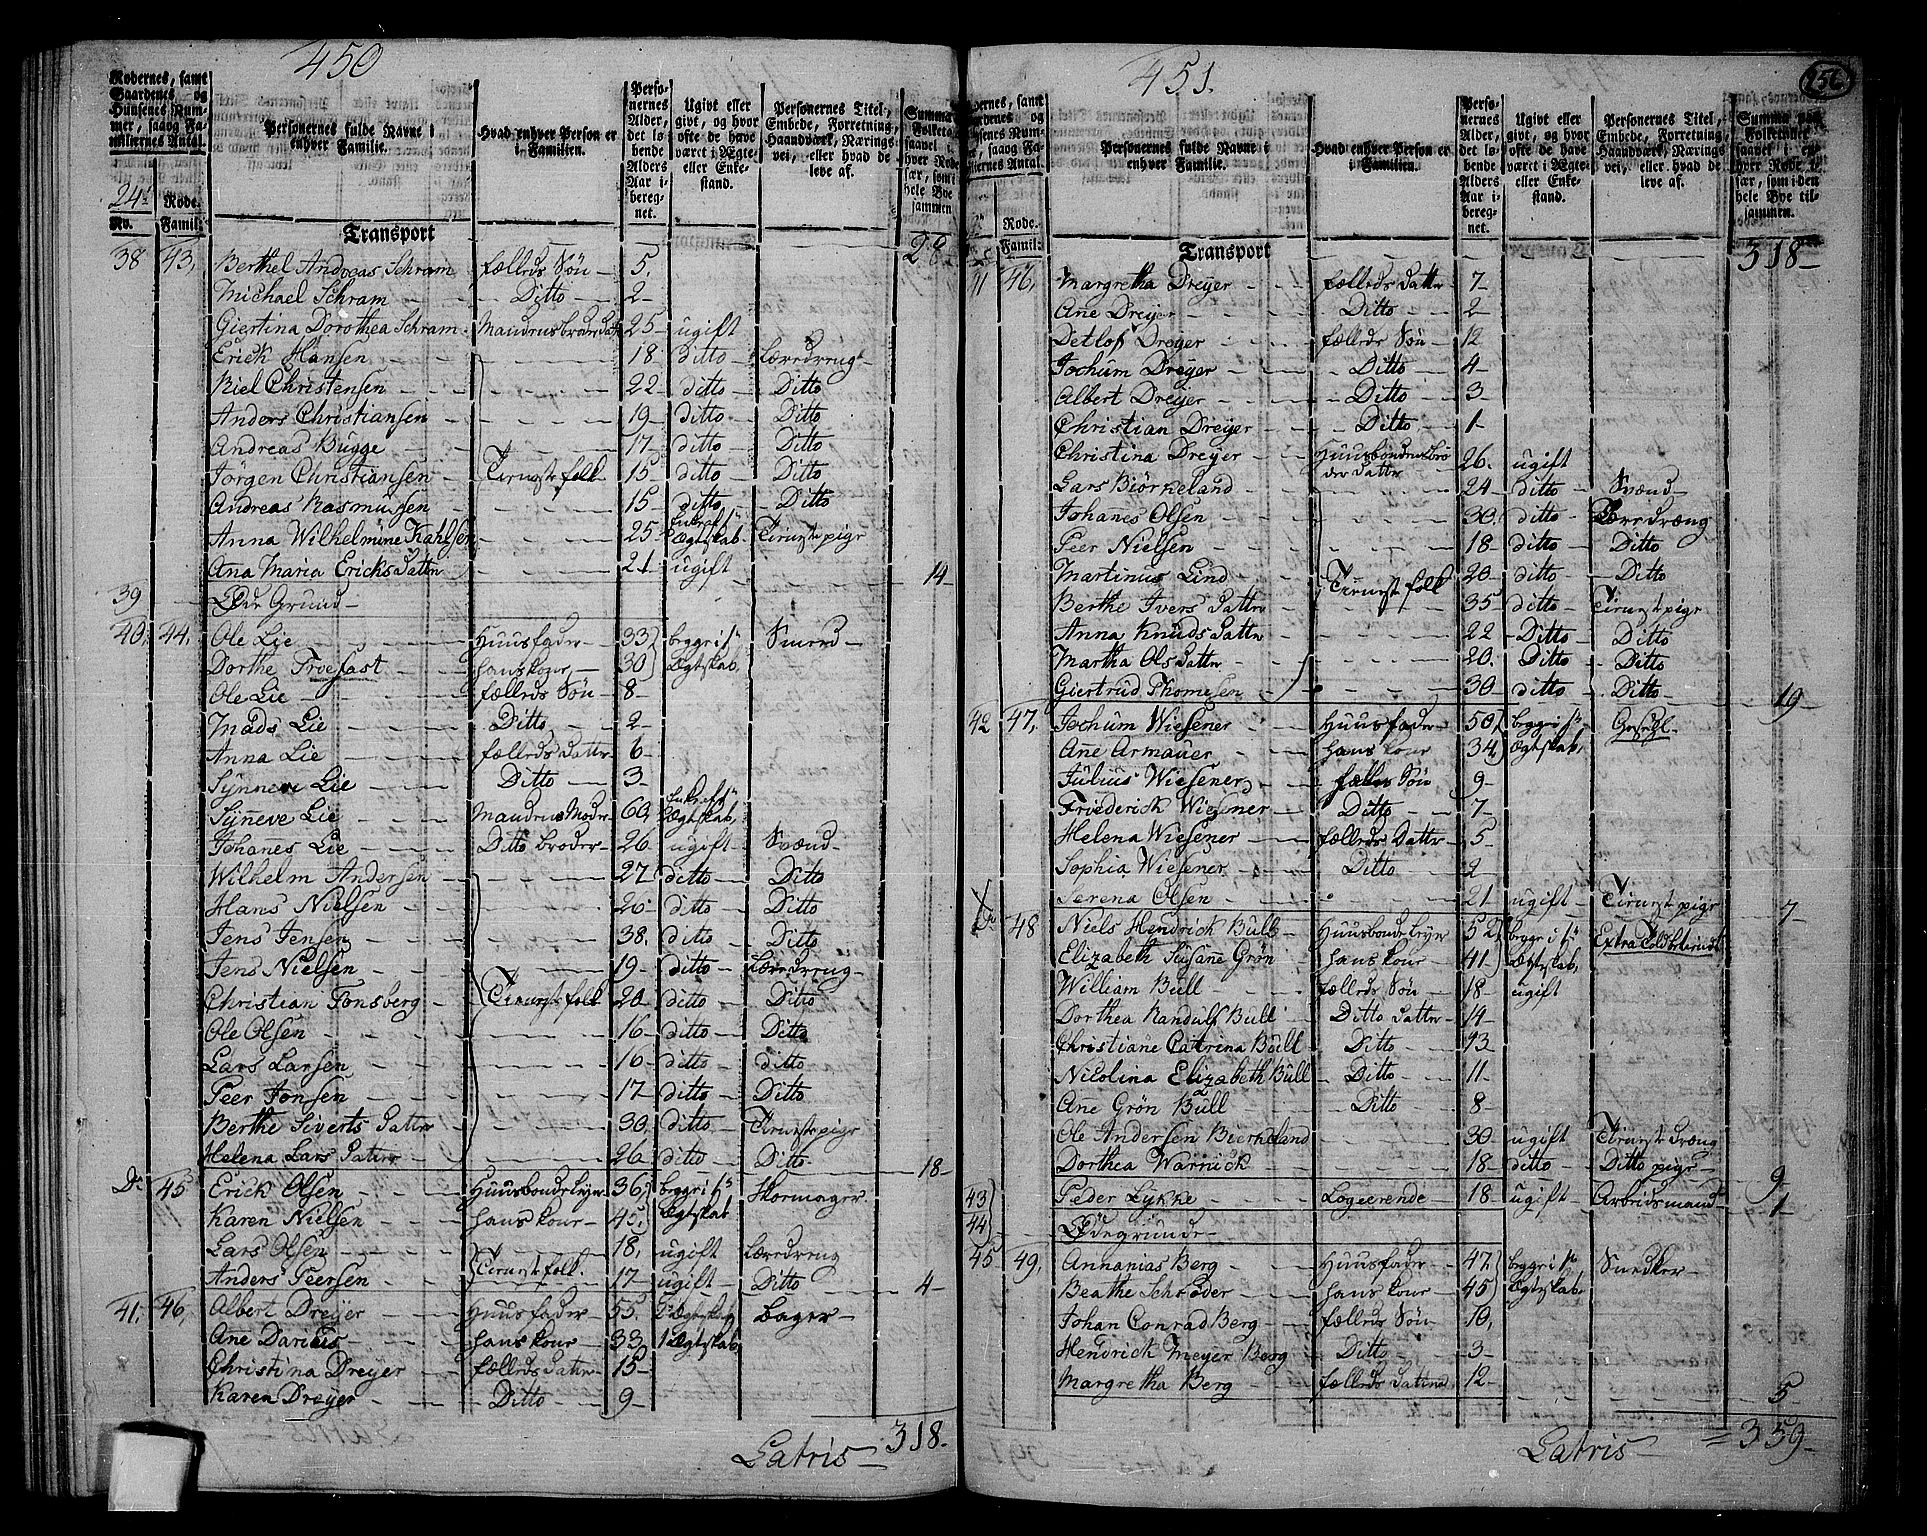 450
Rodernes, samt Gaardenes og Huusenes Nummer, saaog Familiernes Antal.
Personernes fulde Navne i enhver Familie.
Hvad enhver Person er i Familien.
Personernes Alder, det løbende Alders Aar iberegnet.
Ugivt eller givt, og hvor ofte de have været i Ægte- eller Enkestand.
Personernes Titel, Embede, Forretning, Haandværk, Næringsvei, eller hvad de leve af.
24de Rode.
No. Famil:
Transport 28
38 43. Berthel Andreas Schram fælleds Søn 5.
Michael Schram Ditto 2
Giertina Dorothea Schram Mandens broder Datter 25 ugift
Erick Hansen 18 Ditto Læredreng
Niel Christensen 22 ditto Ditto
Anders Christiansen 19 ditto Ditto
Andreas Bugge 17 ditto Ditto
Jørgen Christiansen Tienestefolk 15 ditto Ditto
Andreas Rasmussen 15 ditto Ditto
Anna Wilhelmine Kahlsen 25 Ægteskab Tienestepige
Ana Maria Ericks Datter 21 ugift 14
39 Øde Grund
40. 44. Ole Lie Huusfader 33 begge i 1ste Smeed
Dorthe Troefast hans kone 30 Ægteskab.
Ole Lie fælleds Søn 8
Mads Lie Ditto 2
Anna Lie fælleds Datter 6
Synneve Lie Ditto 3
Syneve Lie Mandens Moder 60 Ægteskab.
Johanes Lie Ditto broder 26 ugift Svænd
Wilhelm Andersen 27 ditto Ditto
Hans Nielsen 26 ditto Ditto
Jens Jensen 38. ditto Ditto
Jens Nielsen 19 ditto Læredreng
Christian Tonsberg Tienestefolk 20 ditto Ditto
Ole Olsen 16 ditto Ditto
Lars Larsen 16 ditto ditto
Peer Jonsen 17 ditto Ditto
Berthe Siverts Datter 30. ditto Tienestepige
Helena Lars Datter 26 ditto Ditto 18
Do 45 Erick Olsen Huusbonde leyer 36 begge i 1ste Skomager
Karen Nielsen hans kone 45 Ægteskab
Lars Olsen Tienestefolk 18. ugift Læredreng
Anders Peersen 17 ugift Ditto 4
41. 46. Albert Dreyer Huusfader 55. Ægteskab Bager
Ane Darieis hans kone 33 1 Ægteskab
Christina Dreyer fælleds Datter 15
Karen Dreyer Ditto 9
Latris 318.
451.
256
Personernes fulde Navne i enhver Familie.
Hvad enhver Person er i Familien.
Personernes Alder, det løbende Alders Aar iberegnet.
Ugivt eller givt, og hvor ofte de have været i Ægte- eller Enkestand.
Personernes Titel, Embede, Forretning, Haandværk, Næringsvei, eller hvad de leve af.
Rode.
Famil:
Transport 318
46. Margretha Dreyer fælleds Datter 7
Ane Dreyer Ditto 2
Detlof Dreyer fælleds Søn 12
Jochum Dreyer Ditto 4
Albert Dreyer Ditto 3
Christian Dreyer Ditto 1
Christina Dreyer Huusbondens Broder Datter 26. ugift
Lars Biørkeland 24 ditto Svænd
Johanes Olsen 30. ditto Læredræng
Peer Nielsen 18 ditto Ditto
Martinus Lind Tienestefolk 20 ditto Ditto
Berthe Ivers Datter 35 ditto Tienestepige
Anna Knuds Datter 22 Ditto Ditto
Martha Ols Datter 20. Ditto Ditto
Giertrud Thomesen 30 ditto Ditto 19
42 47. Jochum Wiesener Huusfader 50 begge i 1ste
Ane Armauer hans kone 34 Ægteskab.
Julius Wiesener fælles Søn 9
Friederich Wiesener Ditto 7
Helena Wiesener fælleds Datter 5
Sophia Wiesener Ditto 2
Serena Olsen 21 ugift Tienestepige 7
Do 48 Niels Hendrick Bull Huusbonde leyer 52 begge i 1ste Extra Toldbetient
Elizabeth Susane Grøn hans kone 41 Ægteskab.
William Bull fælleds Søn 18 ugift
Dorthea Randulf Bull Ditto Datter 14
Christiane Catrina Bull Ditto 13
Nicolina Elizabeth Bull Ditto 11
Ane Grøn Bull Ditto 8
Ole Andersen Bierkeland 30 ugift Tieneste dræng
Dorthea Warnick 18 ditto Ditto pige 9
43 Peder Lykke Logeerende 18 ugift Arbeidsmand 1
44 Ødegrunde
45 49. Annanias Berg Huusfader 47 begge i 1ste Snedker
Beathe Schrøder hans kone 45 Ægteskab.
Johan Conrad Berg fælleds Søn 10.
Hendrick Meyer Berg Ditto 3
Margretha Berg fælleds Datter 12 5
Latris = 359